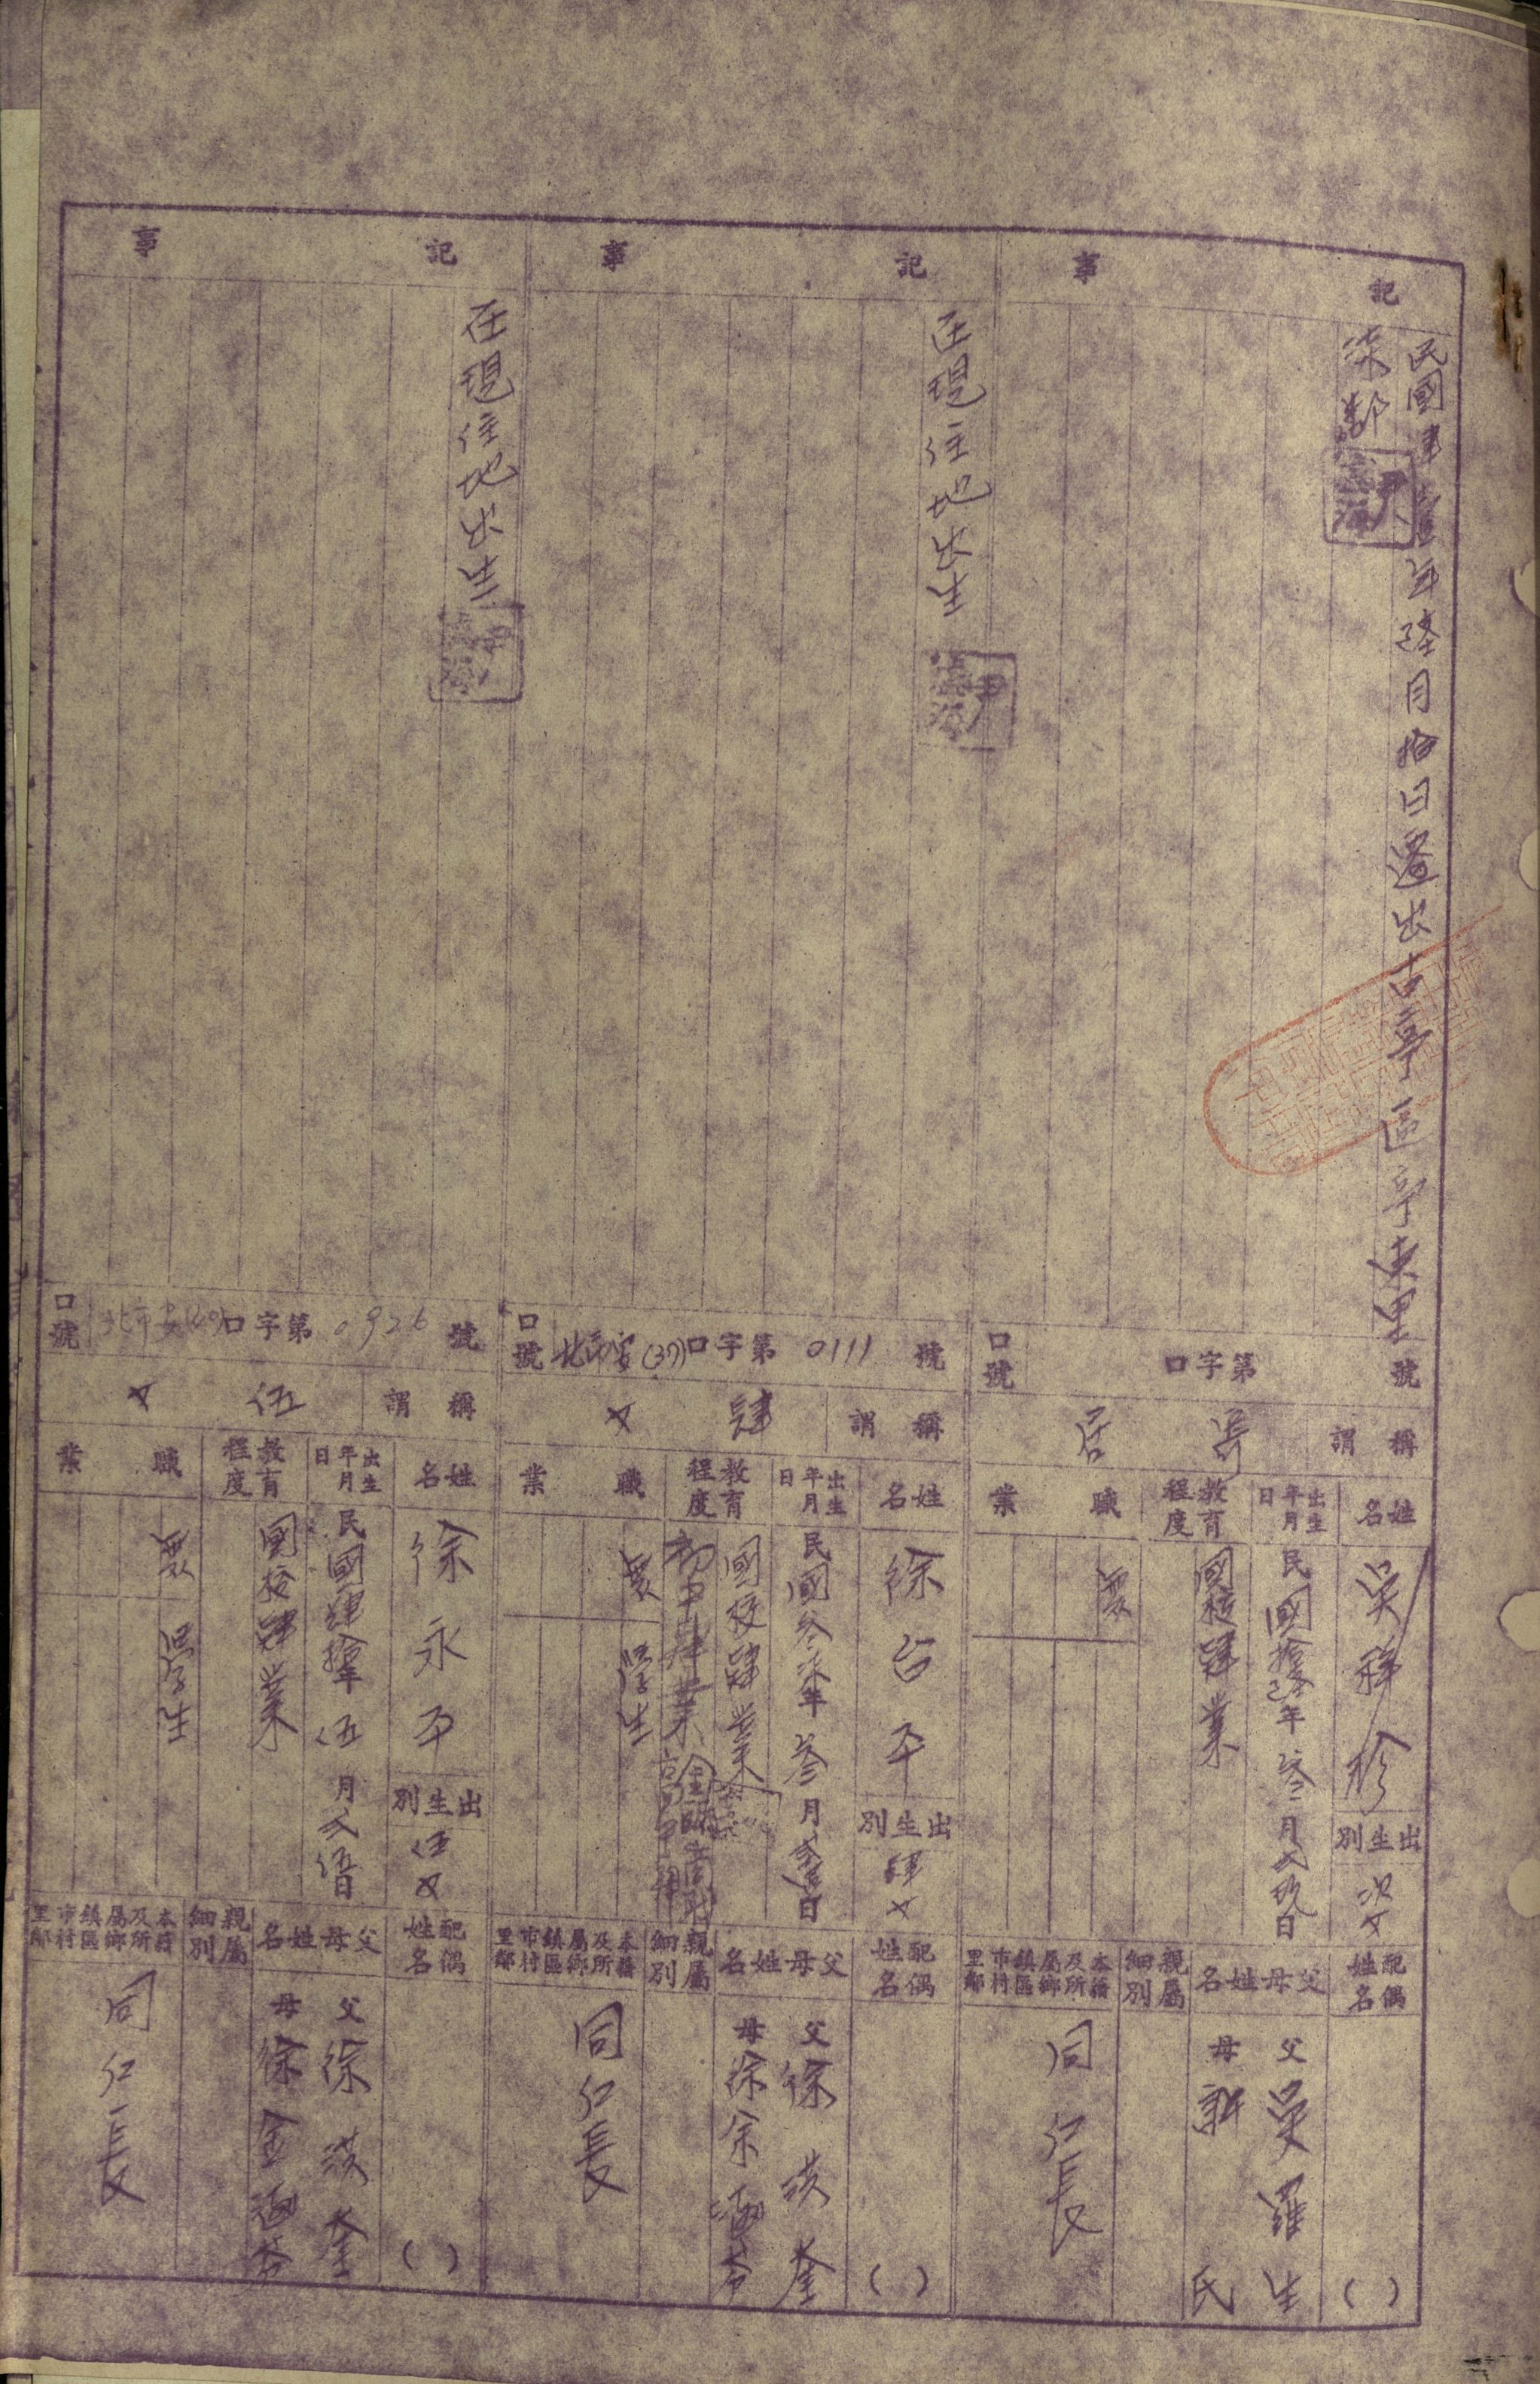 記事
民國肆壹年陸月拾日遷出古亭區亭東里
柒鄰
口號 口字第 號
稱謂 寄居
姓名 吳 珍
出生別 次女
出生年月日 民國拾陸年叁月弍玖日
教育程度 國校肄業
職業 無
配偶姓名 ( )
父母姓名 父 吳羅生
母 氏
親屬細別
本籍及所屬鄉鎮區市村里鄰 同仁長
記事
在現住地出生
口號 北市安(37)口字第0111號
稱謂 肆女
姓名 徐台平
出生別 肆女
出生年月日 民國叁柒年叁月 日
教育程度 國校肄業
初中肄業
職業 無
學生
配偶姓名 ( )
父母姓名 父 徐 奎
母 徐余
親屬細別
本籍及所屬鄉鎮區市村里鄰 同仁長
記事
在現住地出生
口號 北市安(40)口字第0926號
稱謂 伍女
姓名 徐永平
出生別 伍女
出生年月日 民國肆拾年伍月弍伍日
教育程度 國校肄業
職業 無
學生
配偶姓名 ( )
父母姓名 父 徐 奎
母 徐
親屬細別
本籍及所屬鄉鎮區市村里鄰 同仁長